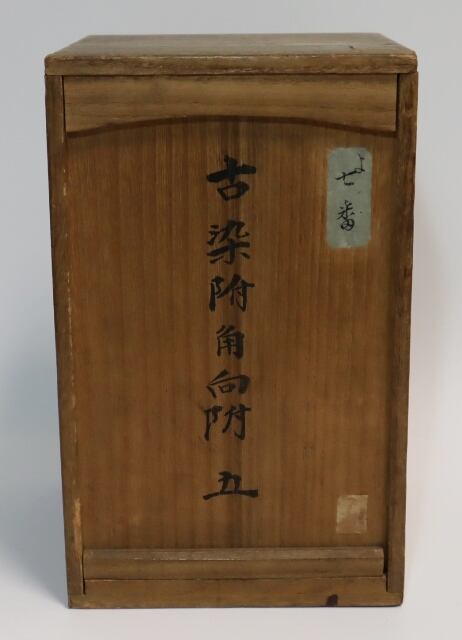 よ七番
古染附角向附 五